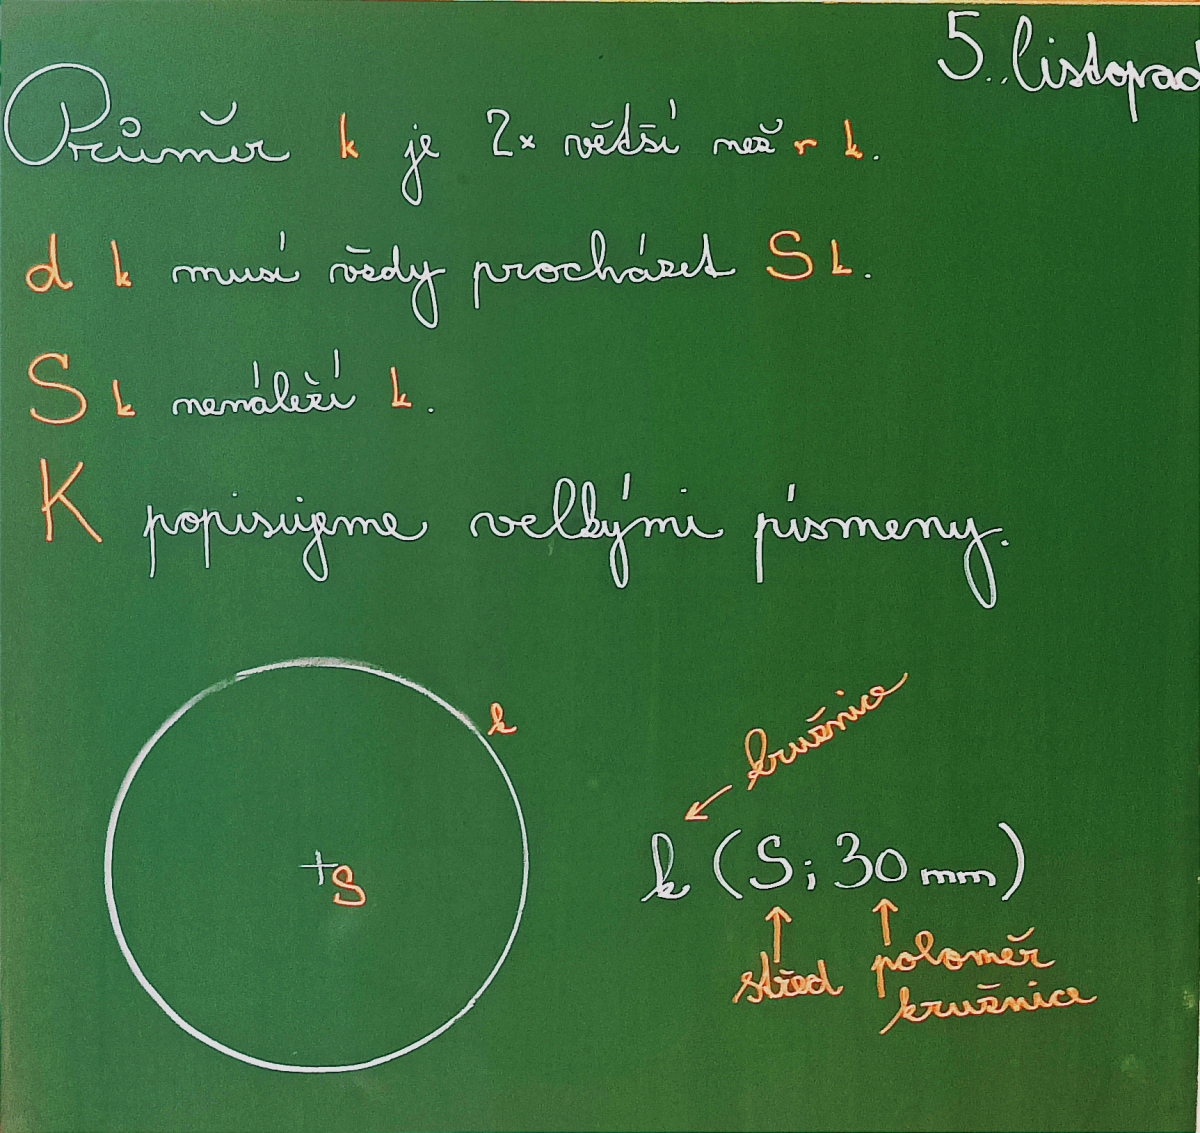 5. listopad
Průměr k je 2x větší než r k.
d k musí vždy procházet S k.
S k nenáleží k.
K popisujeme velkými písmeny.
k
S
kružnice
k (S; 30 mm)
střed poloměr
kružnice